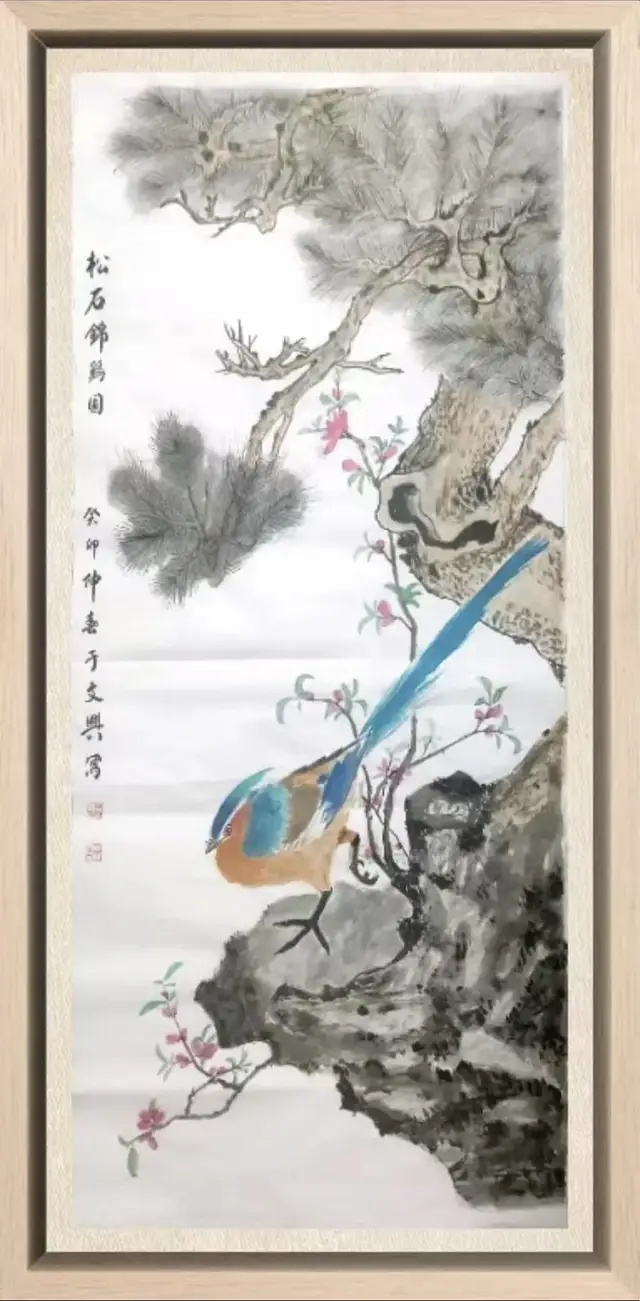 松石錦鷄图
癸卯仲春于文興写